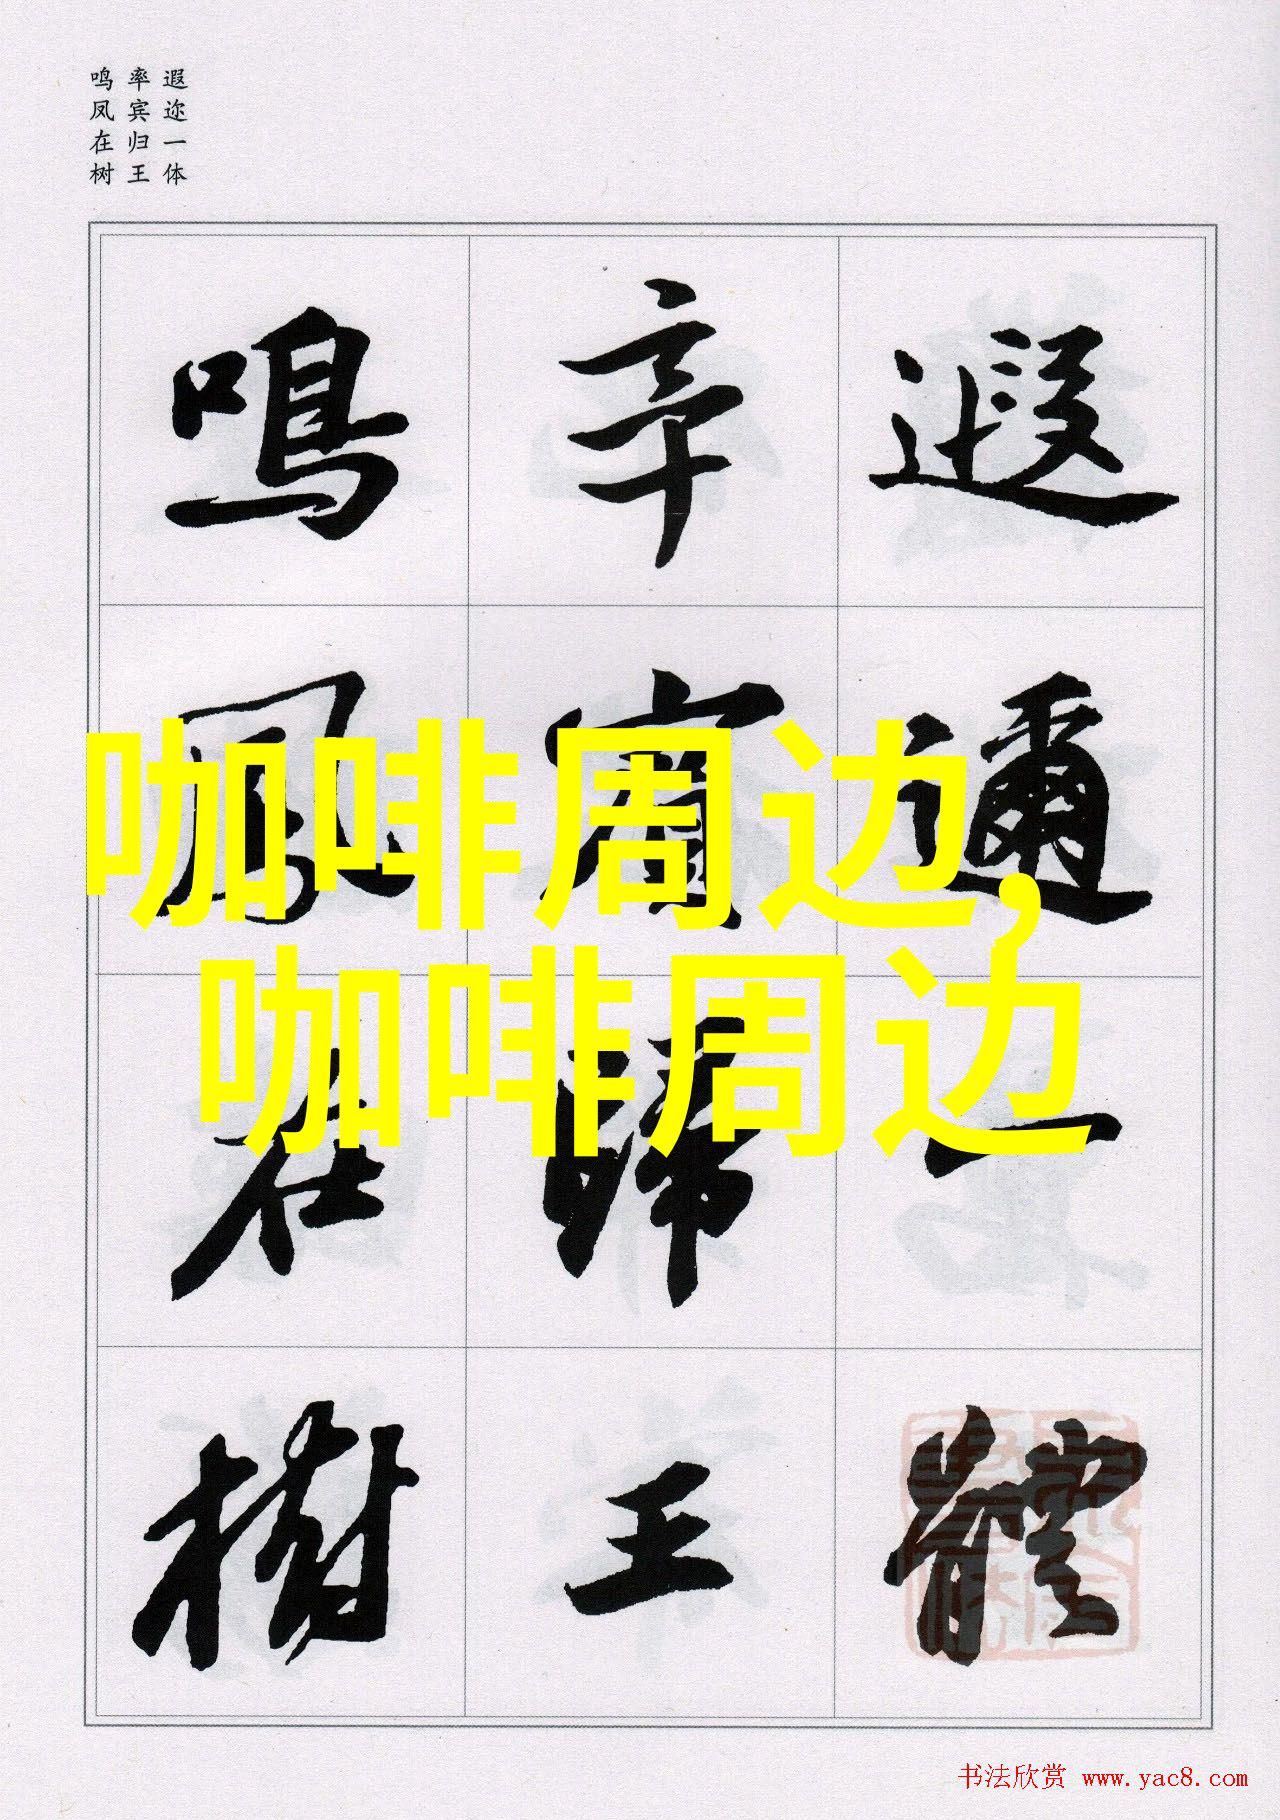 遐迩一体
率宾归王
鸣凤在树
遐邇一體
率賓歸王
鳴鳳在樹
咖啡周边,
咖啡周边
书法欣赏 www.yac8.com